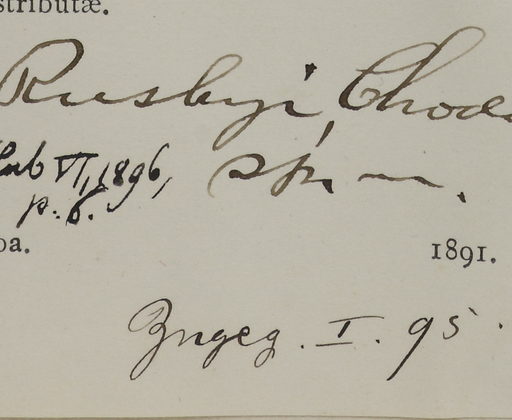 stributæ.
Rusbyi, Chod
sp. n.
VI, 1896,
p. 8.
oa. 1891.
Zngeg. I. 95.